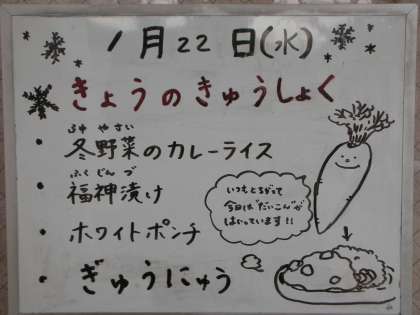 1月22日(水)
きょうのきゅうしょく
ふゆ やさい
・冬野菜のカレーライス
ふくじんづ
・福神漬け
・ホワイトポンチ
・ぎゅうにゅう
いつもとちがって
今日は"だいこん"が
はいっています!!